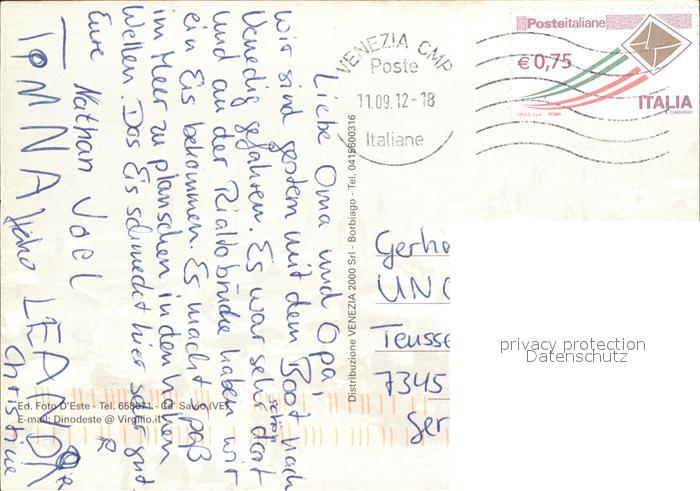 Liebe Oma und Opa,
wir sind gestern mit dem Boot nach
Venedig gefahren. Es war sehr schön dort
und an der Rialtobrücke haben wir
ein Eis bekommen. Es macht Spaß
im Meer zu planschen in den hohen
Wellen. Das Eis schmeckt hier sehr gut.
Eure Nathan Joel
TOM NA LEANDR
Heiko
Christine
VENEZIA CMP
Poste
11.09.12-18
Italiane
Posteitaliane
€ 0,75
ITALIA
Distribuzione VENEZIA 2000 Srl - Borbiago - Tel. 0415600316
Gerh
UN
Teusse
7345
Ger
privacy protection
Datenschutz
Ed. Foto D'Este - Tel. 658071 - Ca' Savio (VE)
E-mail: Dinodeste @ Virgilio.it